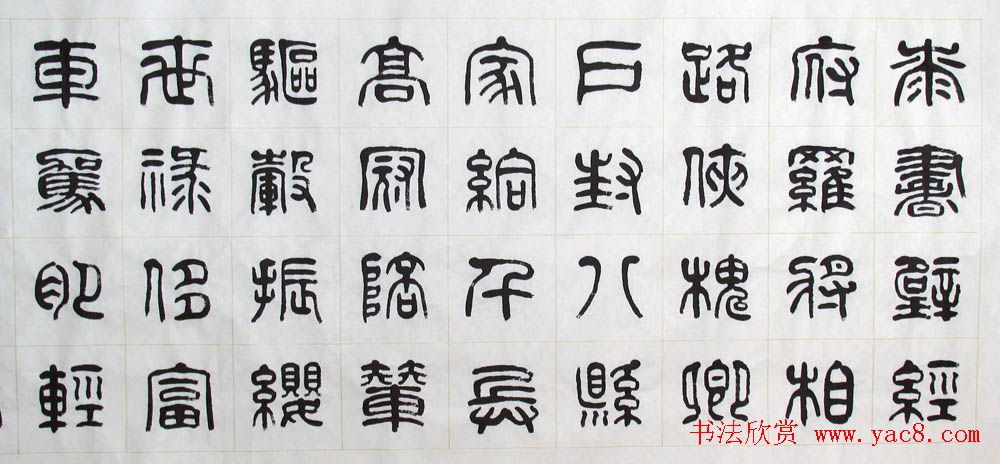 桼書壁經
府羅將相
路俠槐卿
戶封八縣
家給千兵
高冠陪輦
驅轂振纓
世祿侈富
車駕肥輕
书法欣赏 www.yac8.com